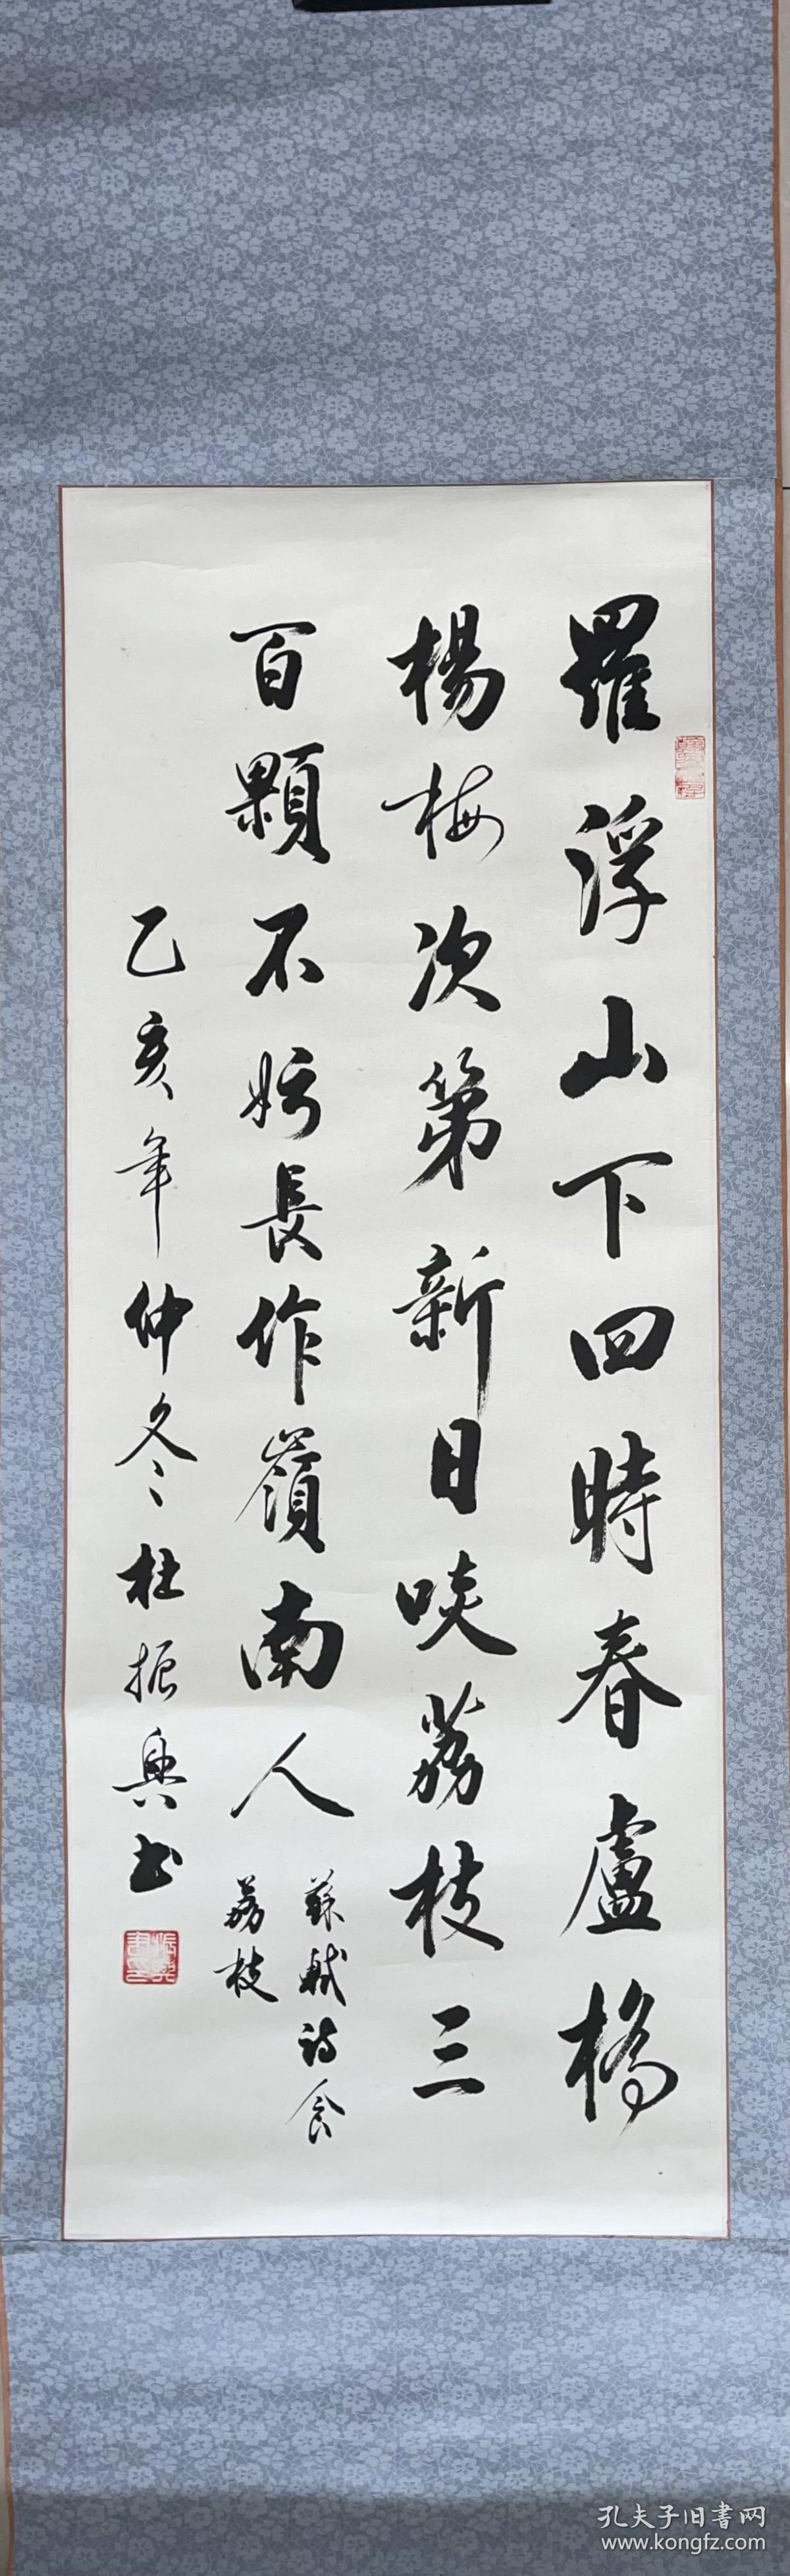 羅浮山下四時春盧橘
楊梅次第新日啖荔枝三
百顆不妨長作嶺南人
蘇軾詩食
荔枝
乙亥年仲冬杜振興书
孔夫子旧書网
www.kongfz.com